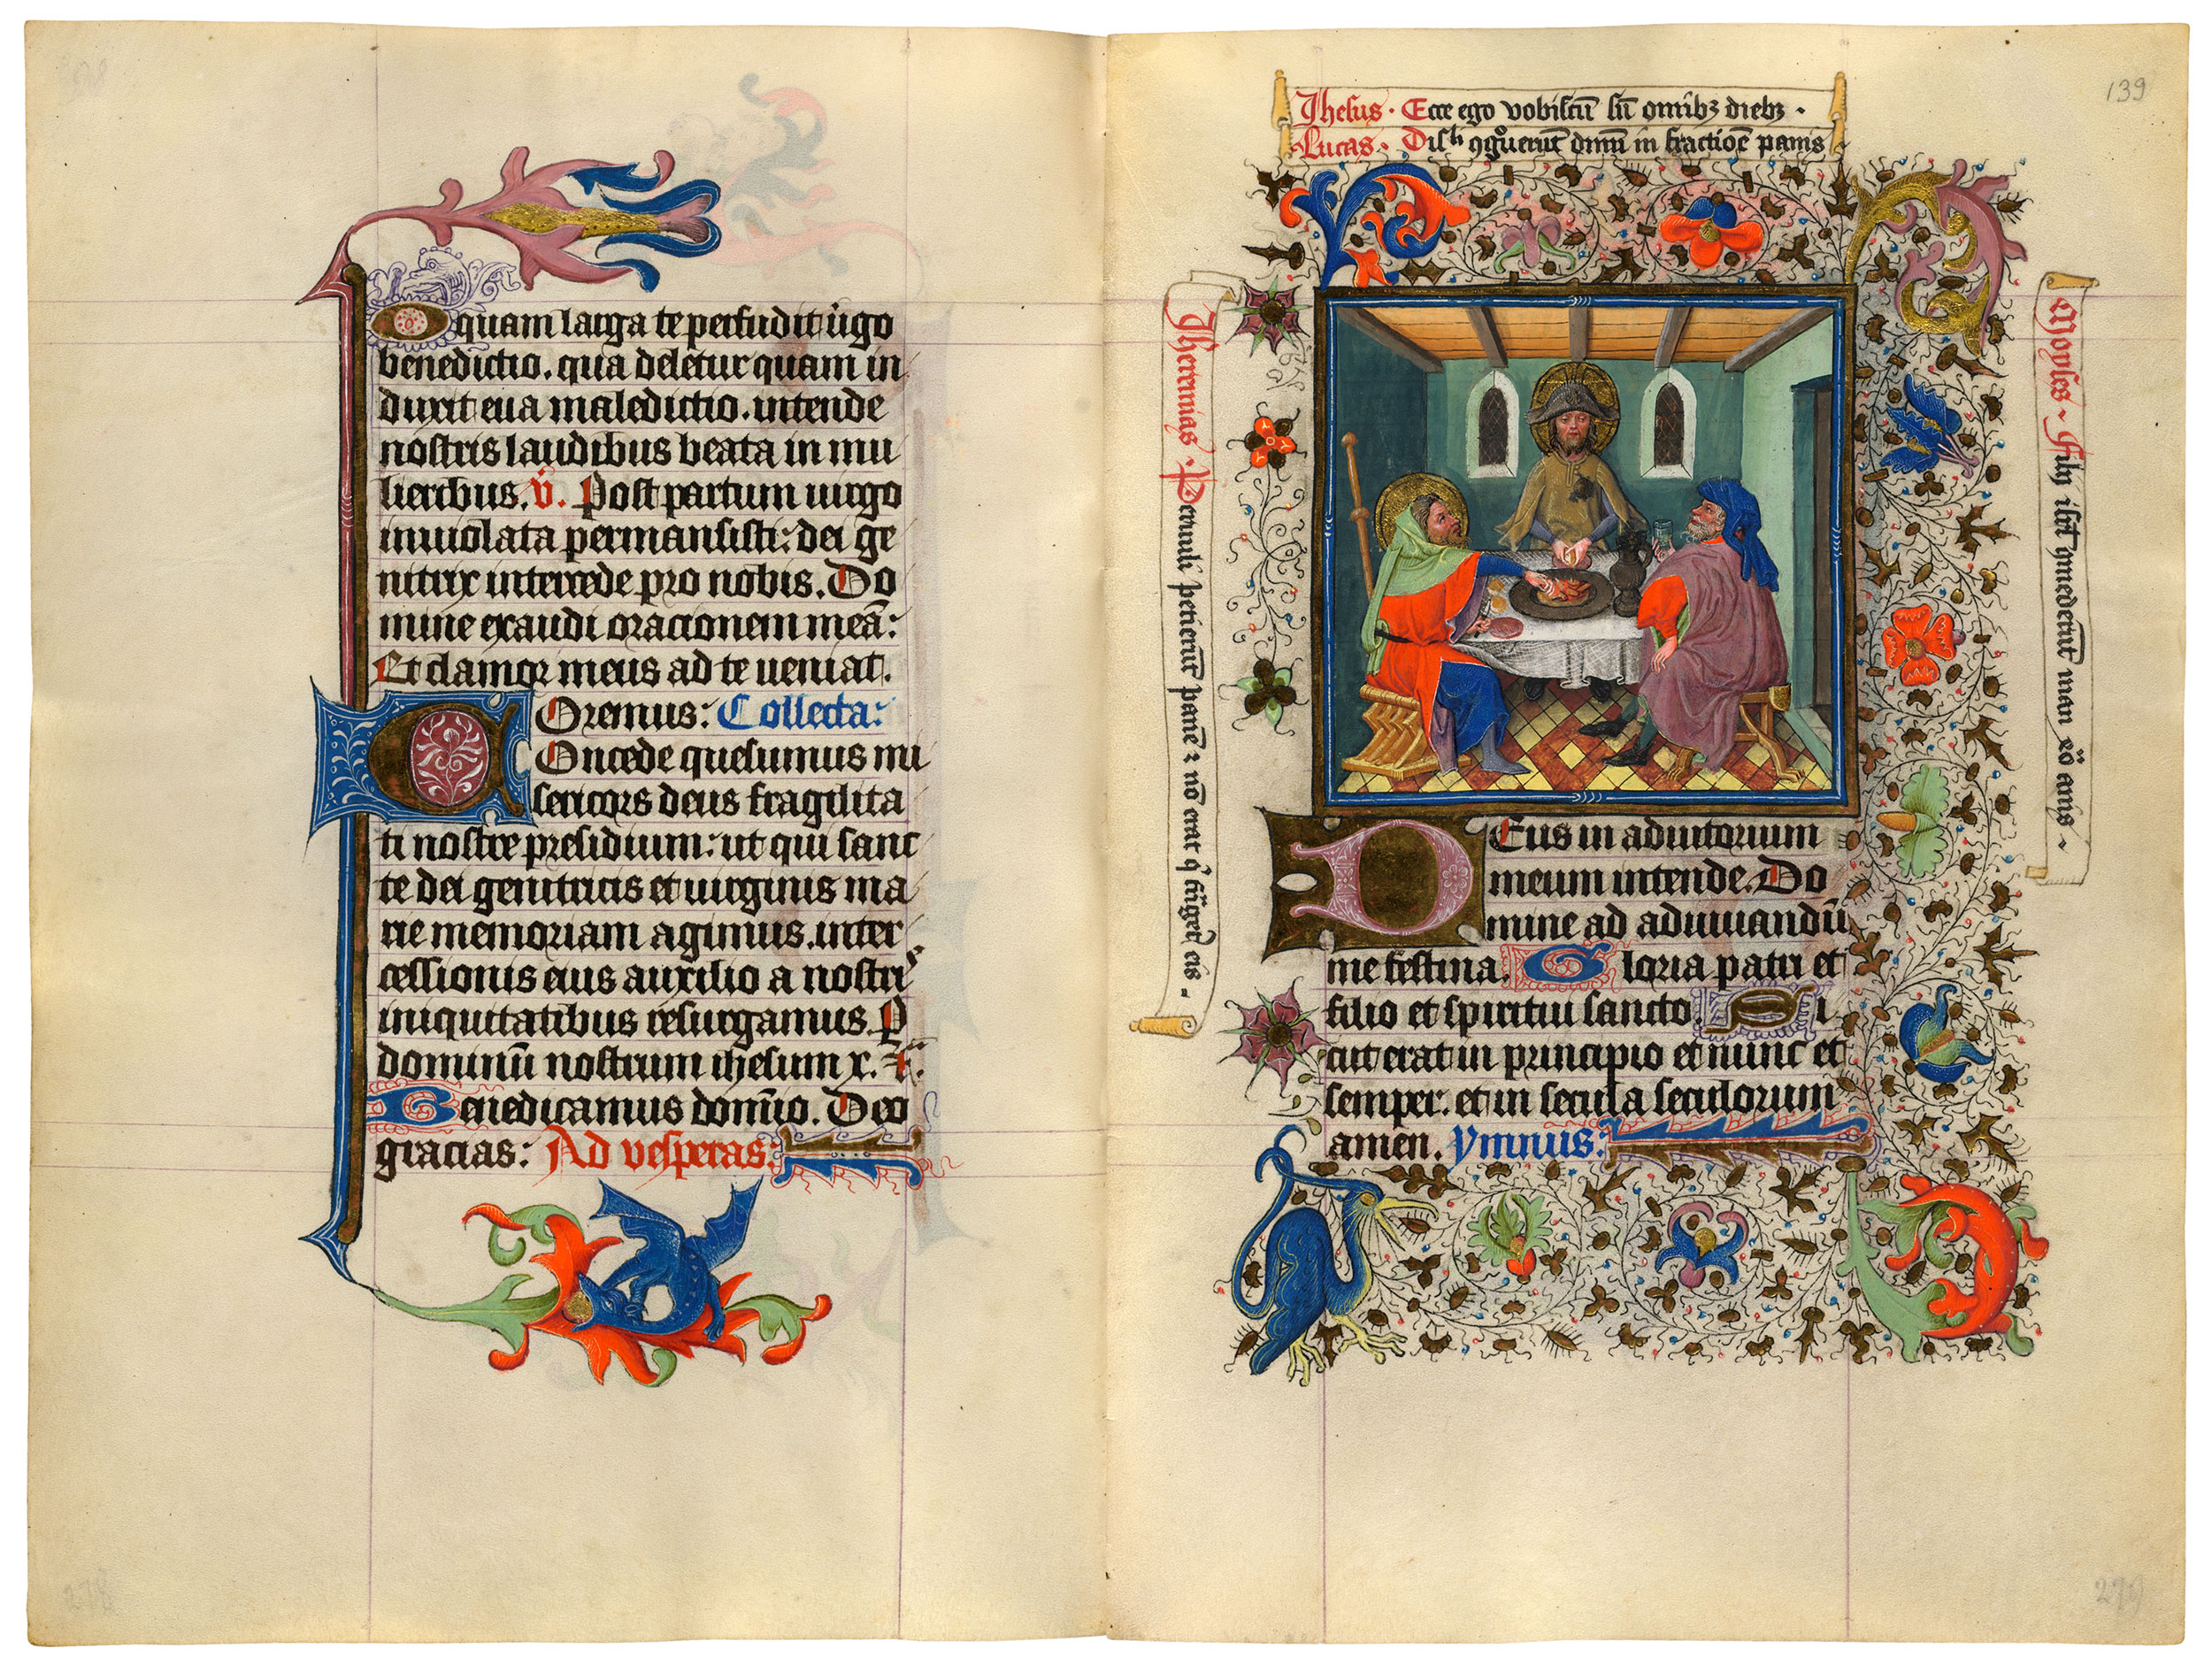 O quam larga te perfudit ũgo
benedictio. qua deletur quam in
duxit eua maledictio. intende
nostris laudibus beata in mu
lieribus. v̄. Post partum uirgo
inuiolata permansisti: dei ge
nitrix intercede pro nobis. Do
mine exaudi oracionem meā:
Et clamor meus ad te ueniat.
Oremus: Collecta:
Concede quesumus mi
sericors deus fragilita
ti nostre presidium: ut qui sanc
te dei genitricis et uirginis ma
rie memoriam agimus. inter
cessionis eius auxilio a nostri
iniquitatibus resurgamus. P
dominū nostrum ihesum x.
Benedicamus domīo. Deo
gracias: Ad vesperas:
278
139
Jhesus. Ecce ego vobiscū sū omībꝫ diebꝫ.
Lucas. 9g̊uerūt dm̄m in fractiōe panis
Jheremias. Paruuli petierūt panē ⁊ nō erat q̇ frāgeret eis.
Moyses. Filij isrl̄ 9mederūt man xl̊ anis.
DEus in adiutorium
meum intende. Do
mine ad adiuuandū
me festina. Gloria patri et
filio et spiritui sancto. Si
cut erat in principio et nunc et
semper. et in secula seculorum
amen. ymnus:
279